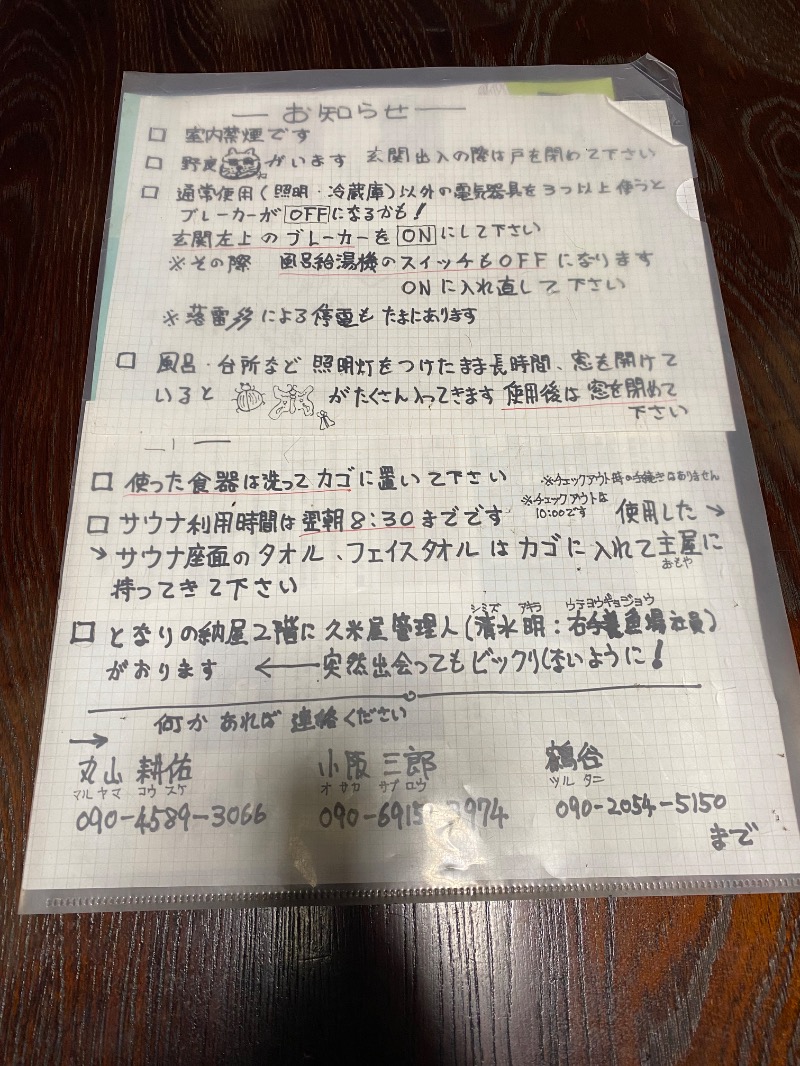 お知らせ
□ 室内禁煙です
□ 野良がいます 玄関出入の際は戸を閉めて下さい
□ 通常使用(照明・冷蔵庫)以外の電気器具を3つ以上使うと
ブレーカーがOFFになるかも!
玄関左上のブレーカーをONにして下さい
※その際 風呂給湯機のスイッチもOFFになります
ONに入れ直して下さい
※落雷等による停電もたまにあります
□ 風呂・台所など照明灯をつけたまま長時間、窓を開けて
いると がたくさん入ってきます 使用後は窓を閉めて
下さい
□ 使った食器は洗ってカゴに置いて下さい
※チェックアウト時の手続きはありません
□ サウナ利用時間は翌朝8:30までです
※チェックアウトは
10:00です
使用した→
→サウナ座面のタオル、フェイスタオルはカゴに入れて主屋に
おもや
持ってきて下さい
シミズ アキラ ウテヨウギョジョウ
□ となりの納屋2階に久米屋管理人(清水明:右手養魚場社員)
がおります ←突然出会ってもビックリしないように!
何かあれば連絡ください
→
丸山 耕佑 小阪 三郎 鶴谷
マルヤマ コウスケ オサカ サブロウ ツルタニ
090-4589-3066 090-6915-974 090-2054-5150
まで